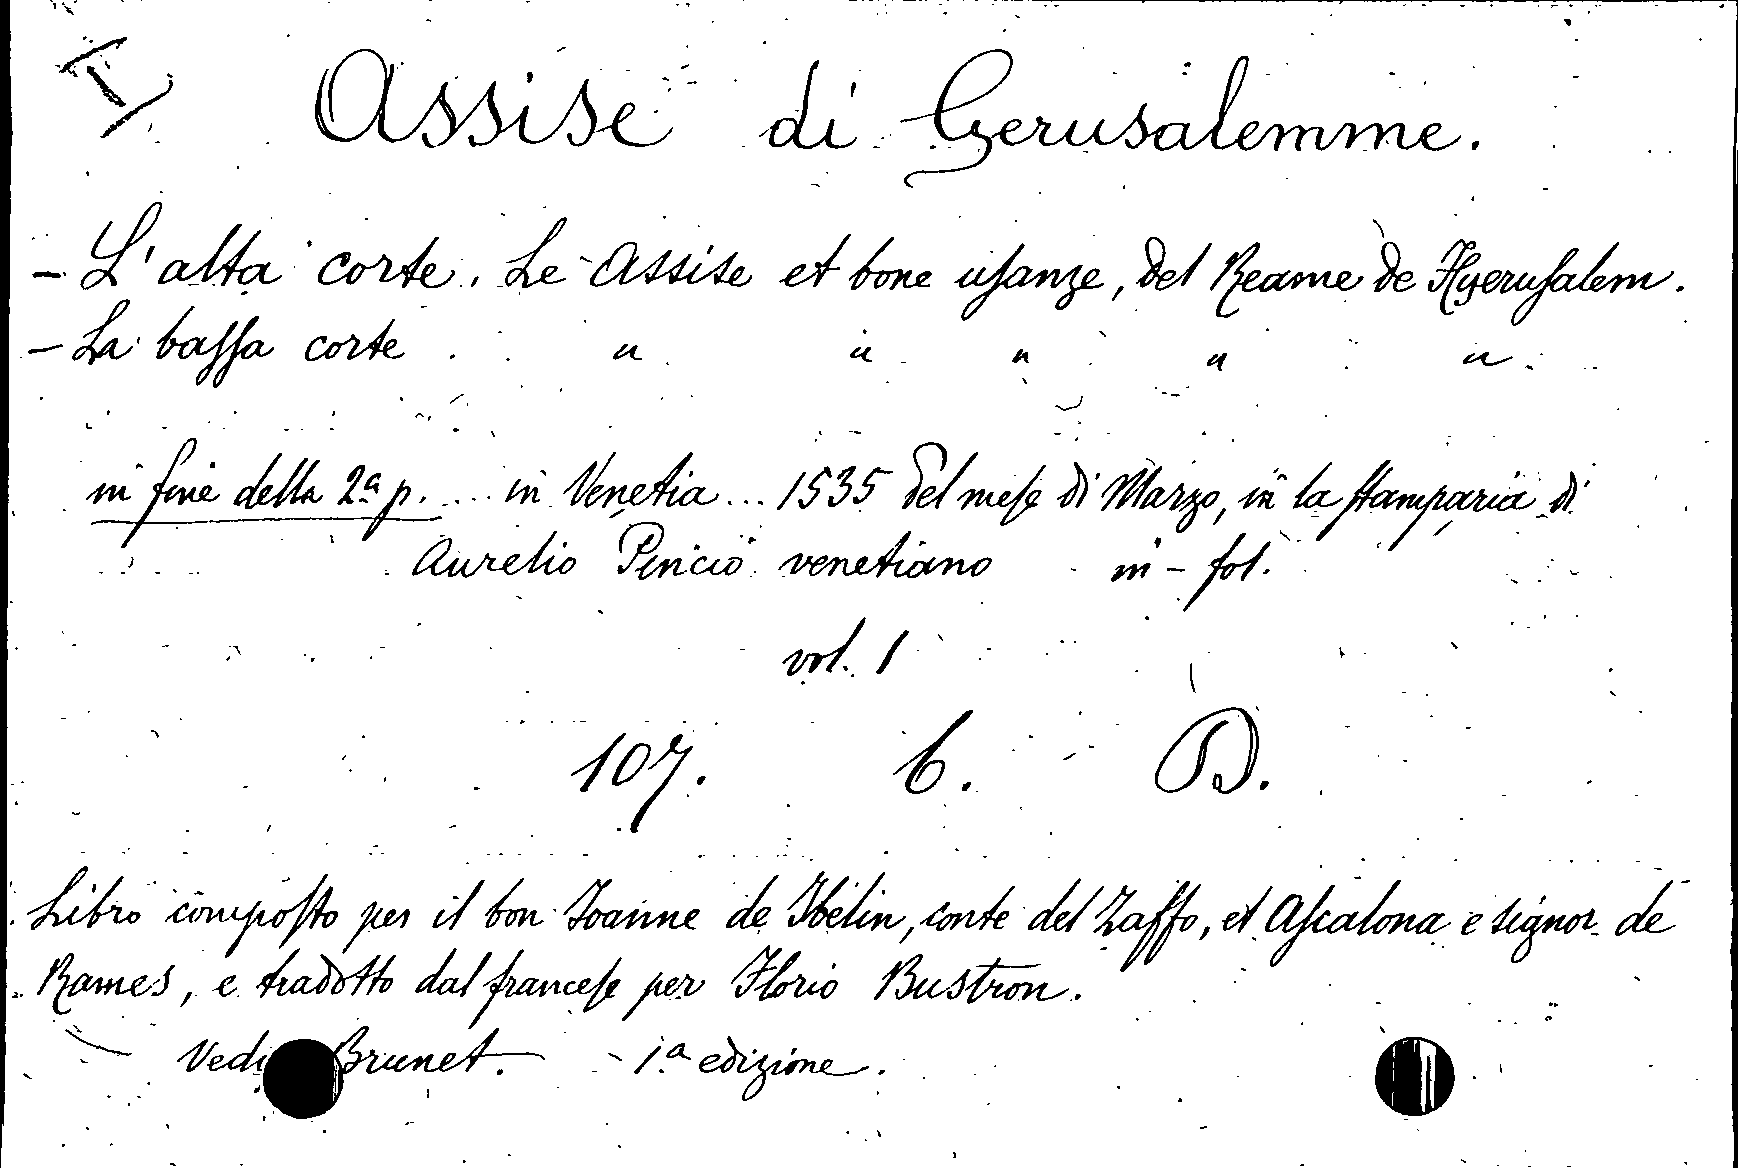 Assise di Gerusalemme.
- L'alta corte. Le Assise et bone uſanze, del Reame de Hyeruſalem.
- La baſſa corte . " " " " "
in fine della 2ª p. ... in Venetia ... 1535 del meſe di Marzo, in la ſtamparia di
Aurelio Pincio venetiano in-fol.
vol. 1
107. 6. D.
Libro compoſto per il bon Joanne de Ibelin, conte del Zaffo, et Aſcalona e signor de
Rames, e tradotto dal franceſe per Florio Bustron.
Vedi Brunet. - 1ª edizione.